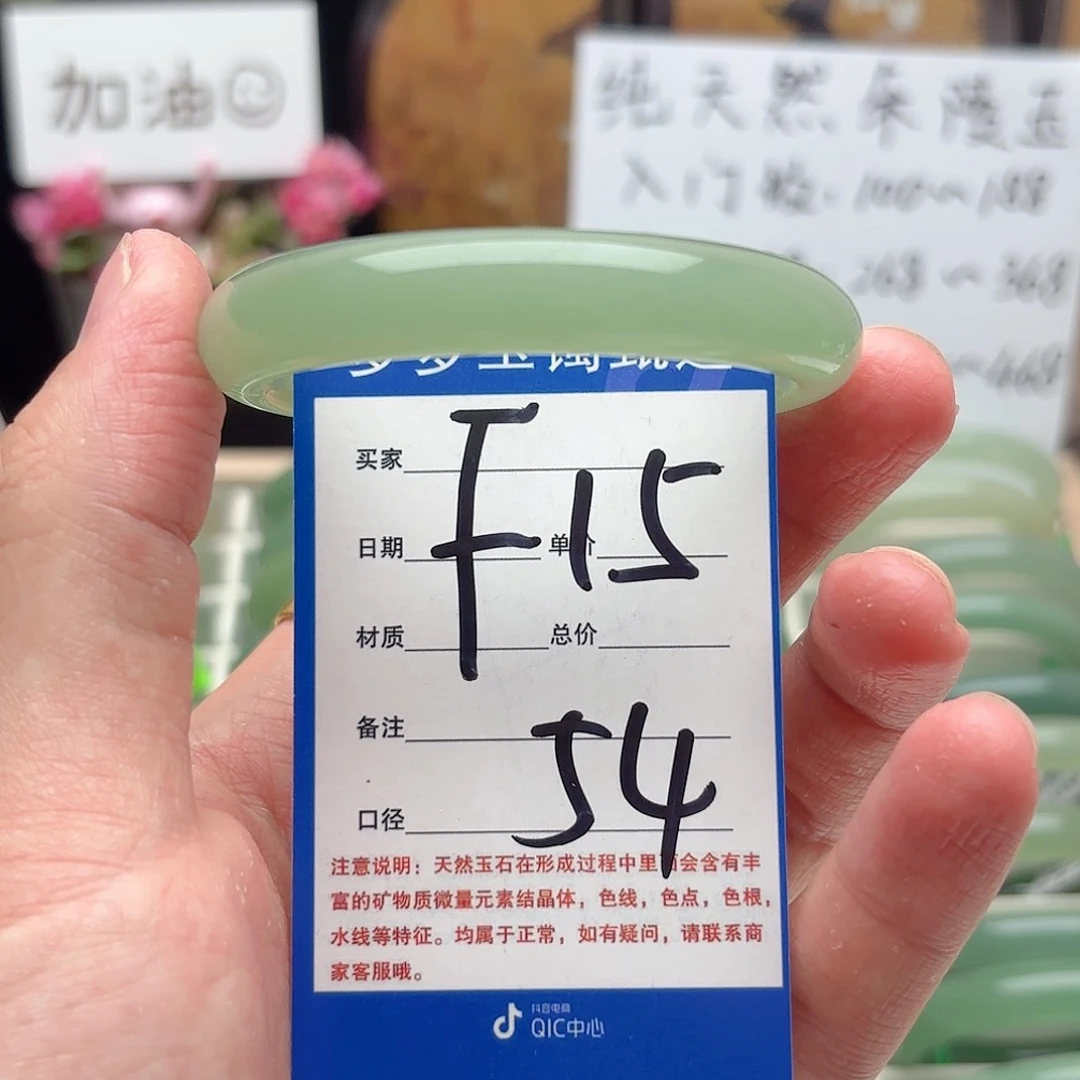 加油
纯天然
入门 100~188
268~368
~668
F15
买家
日期 单价
材质 总价
备注
54
口径
注意说明：天然玉石在形成过程中里面会含有丰
富的矿物质微量元素结晶体，色线，色点，色根，
水线等特征。均属于正常，如有疑问，请联系商
家客服哦。
抖音电商
QIC中心